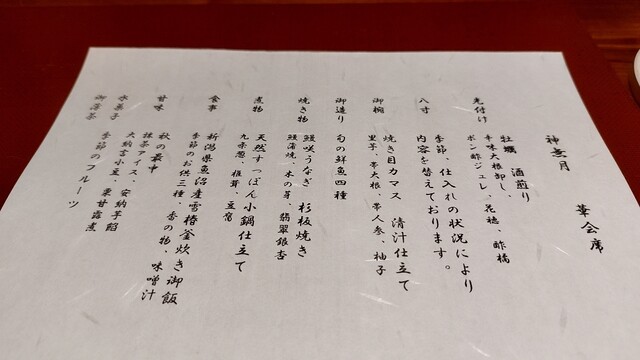 神無月
華会席
先付け
牡蠣 酒煎り
辛味大根卸し、
ポン酢ジュレ、花穂、酢橘
八寸
季節、仕入れの状況により
内容を替えております。
御椀
焼き目カマス 清汁仕立て
里芋、亭大根、亭人参、柚子
御造り
旬の鮮魚四種
焼き物
鰻咲うなぎ 杉板焼き
鰻蒲焼、木の芽、翡翠銀杏
煮物
天然すっぽん小鍋仕立て
九条葱、椎茸、豆腐
食事
新潟県魚沼産雪椿釜炊き御飯
季節のお供三種、香の物、味噌汁
甘味
秋の最中
抹茶アイス、安納芋餡
大納言小豆、栗甘露煮
水菓子
季節のフルーツ
御薄茶